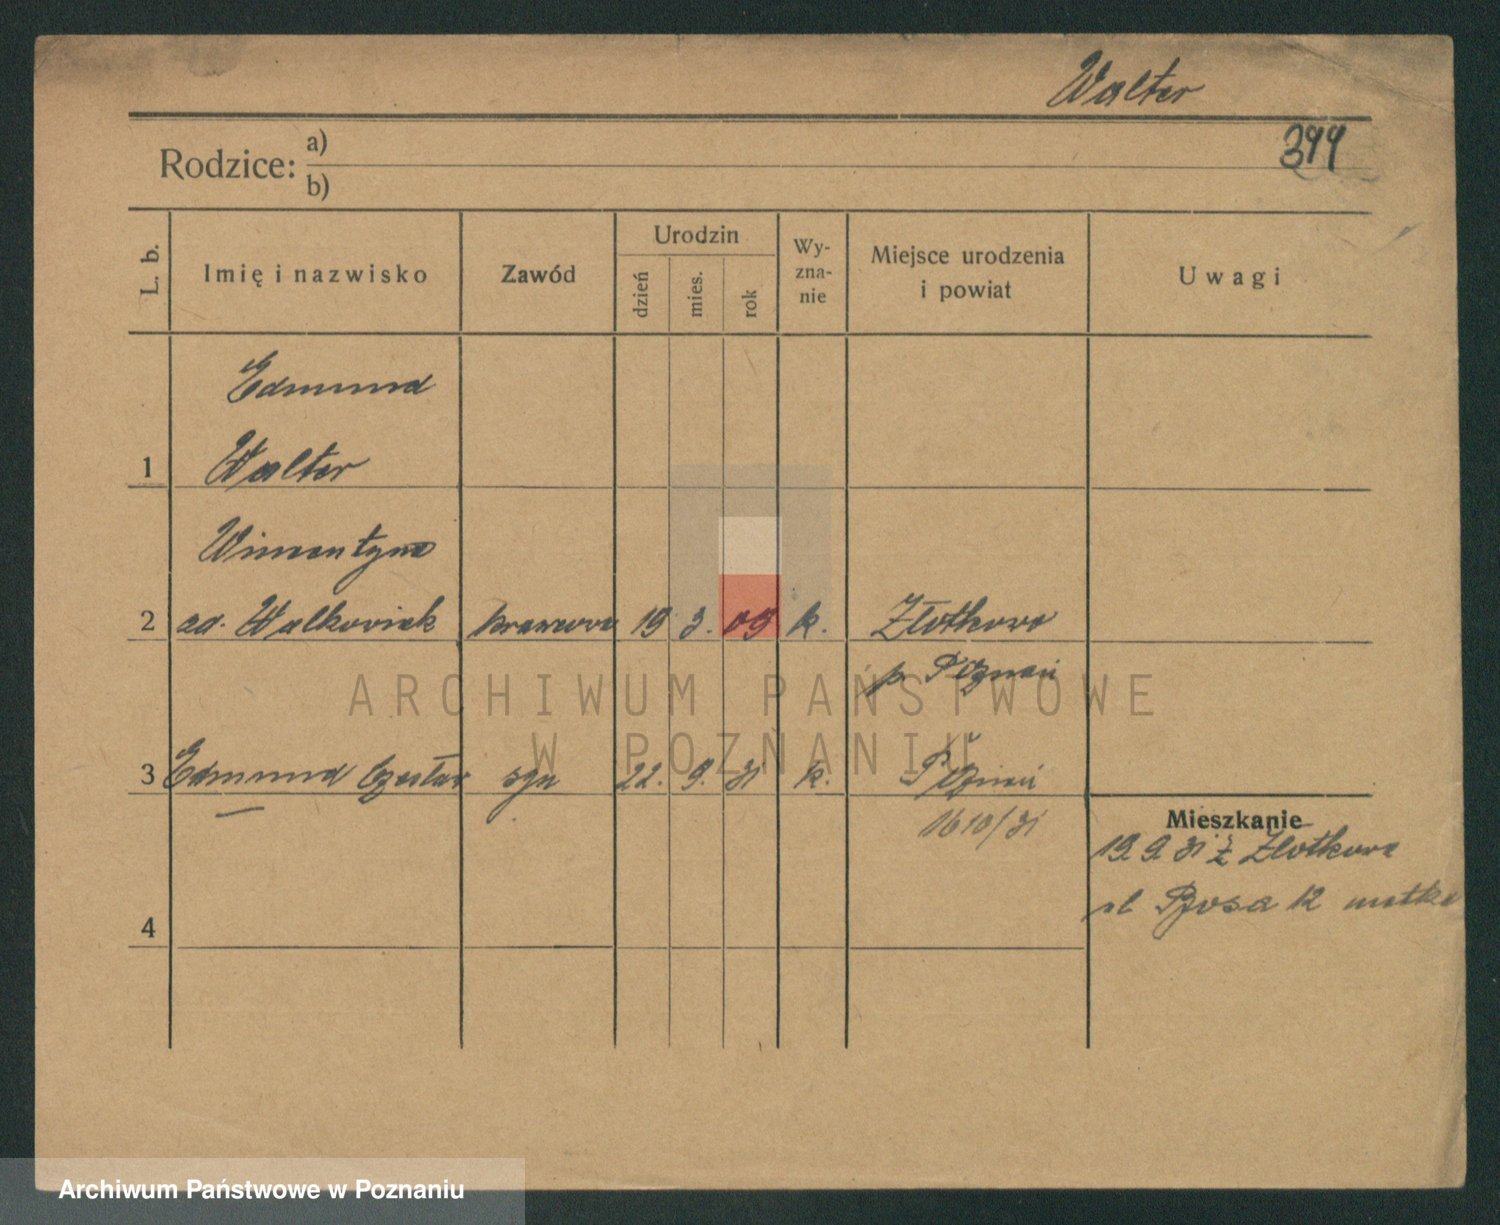 Walter
399
Rodzice: a)
b)
L. b.
Imię i nazwisko
Zawód
Urodzin
dzień
mies.
rok
Wy-
zna-
nie
Miejsce urodzenia
i powiat
Uwagi
Edmund
1 Walter
2 zd. Walkowiak krawcowa 19 3. 09 k. Złotkowo
p. Poznań
3 Edmund Czesław syn 22. 9. 31 k. Poznań
1610/31
Mieszkanie
19 9 31 z Złotkowa
ul 12 matka
4
ARCHIWUM PAŃSTWOWE
W POZNANIU
Archiwum Państwowe w Poznaniu